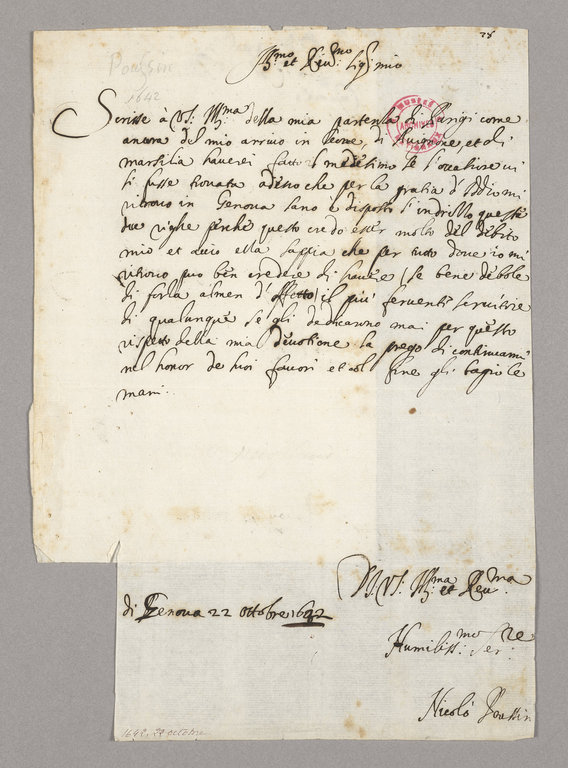 28
Poussin
1642
Ill.mo et Reu.mo Sig.r mio
Scrisse a V.S. Ill.ma della mia partenza di Parigi come
ancora del mio arriuo in Leone, di Auignone et di
Marsilia hauerei fatto il medesimo se l'occatione ui
si fusse trouata adesso che per la gratia d'Iddio mi
ritrouo in Genoua sano e disposto l'indrizzo queste
due righe perche questo credo esser molto del debito
mio et acio ella sappia che per tutto doue io mi
ritrouo puo ben credere di hauere (se bene debole
di forza almen d'effetto) il piu feruente seruitore
di qualunque se gli dedicarno mai per questo
rispetto della mia deuotione la prego di continuarmi
nel honor de suoi fauori et al fine gli bagio le
mani.
MUSÉE
ARCHIVES
D. V.S. Ill.ma et Reu.ma
di Genoua 22 ottobre 1642
Humiliss.mo ser.re
Nicolò Poussin
1642, 22 octobre